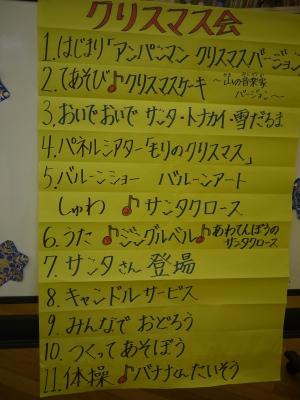 クリスマス会
1.はじまり「アンパンマン クリスマスバージョン
2.てあそび♪クリスマスケーキ ～山の音楽家バージョン～
3.おいでおいで サンタ・トナカイ・雪だるま
4.パネルシアター「もりのクリスマス」
5.バルーンショー バルーンアート
しゅわ ♪サンタクロース
6.うた♪ジングルベル♪あわてんぼうのサンタクロース
7.サンタさん登場
8.キャンドルサービス
9.みんなで おどろう
10.つくってあそぼう
11.体操♪バナナくんたいそう